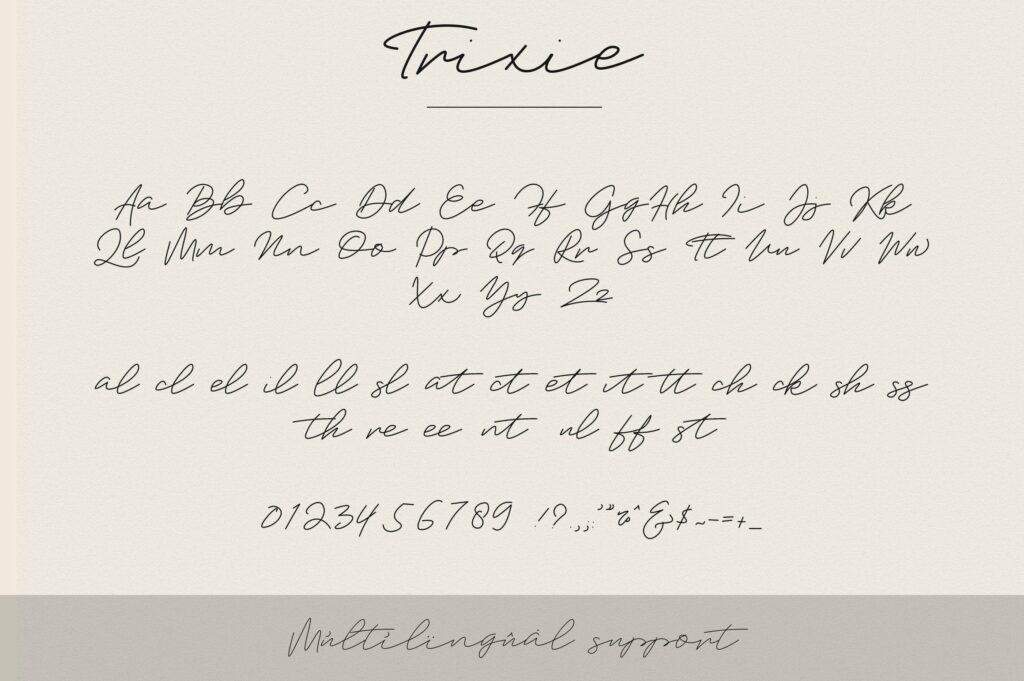 Trixie
Aa Bb Cc Dd Ee Ff Gg Hh Ii Jj Kk
Ll Mm Nn Oo Pp Qq Rr Ss Tt Uu Vv Ww
Xx Yy Zz
al cl el il ll sl at ct et it tt ch ck sh ss
th re ee nt nl ff st
0123456789 !? .,;: '"%^&$~-=+_
Múltílïngûäl support